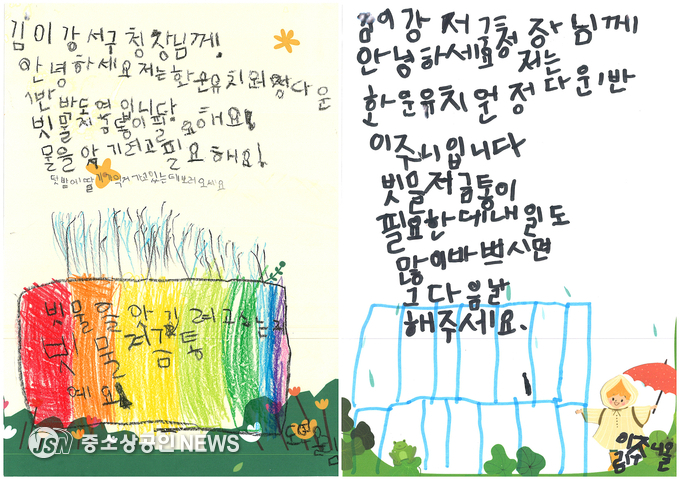 김이강 서구청장님께!
안녕하세요 저는 화운유치원 정다운
1반 박도연입니다
빗물저금통이 필요해요!
물을 아끼려고 필요해요!
텃밭에 딸기
빗물을 앗길려고하는
빗물
저금통
예요!
JSN 중소상공인NEWS
김이강 서구청장님께
안녕하세요 저는
화운유치원 정다운1반
이주니입니다
빗물저금통이
필요한데내일도
많이바쁘시면
그다음날
해주세요.